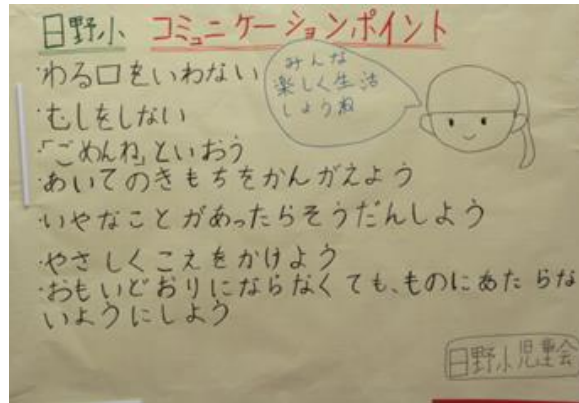 日野小 コミュニケーションポイント
みんな
楽しく生活
しようね
・わる口をいわない
・むしをしない
・「ごめんね」といおう
・あいてのきもちをかんがえよう
・いやなことがあったらそうだんしよう
・やさしくこえをかけよう
・おもいどおりにならなくても、ものにあたらな
いようにしよう
日野小児童会